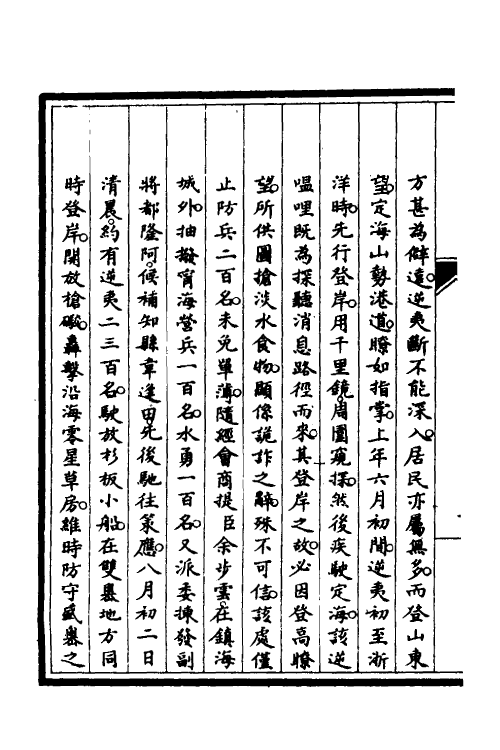 方甚為僻遠逆夷斷不能深入居民亦屬無多而登山東
望定海山勢港道瞭如指掌上年六月初間逆夷初至浙
洋時先行登岸用千里鏡周圍窺探然後疾駛定海該逆
嗢哩既為探聽消息路徑而來其登岸之故必因登高瞭
望所供圖搶淡水食物顯係詭詐之辭殊不可信該處僅
止防兵二百名未免單薄隨經會商提臣余步雲在鎮海
城外抽撥甯海營兵一百名水勇一百名又派委揀發副
將都隆阿候補知縣韋逢田先後馳往策應八月初二日
清晨約有逆夷二三百名駛放杉板小船在雙嶴地方同
時登岸開放槍礮轟擊沿海零星草房維時防守盛嶴之